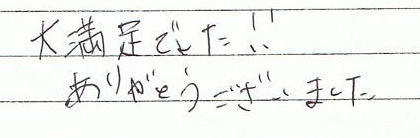 大満足でした!!
ありがとうございました